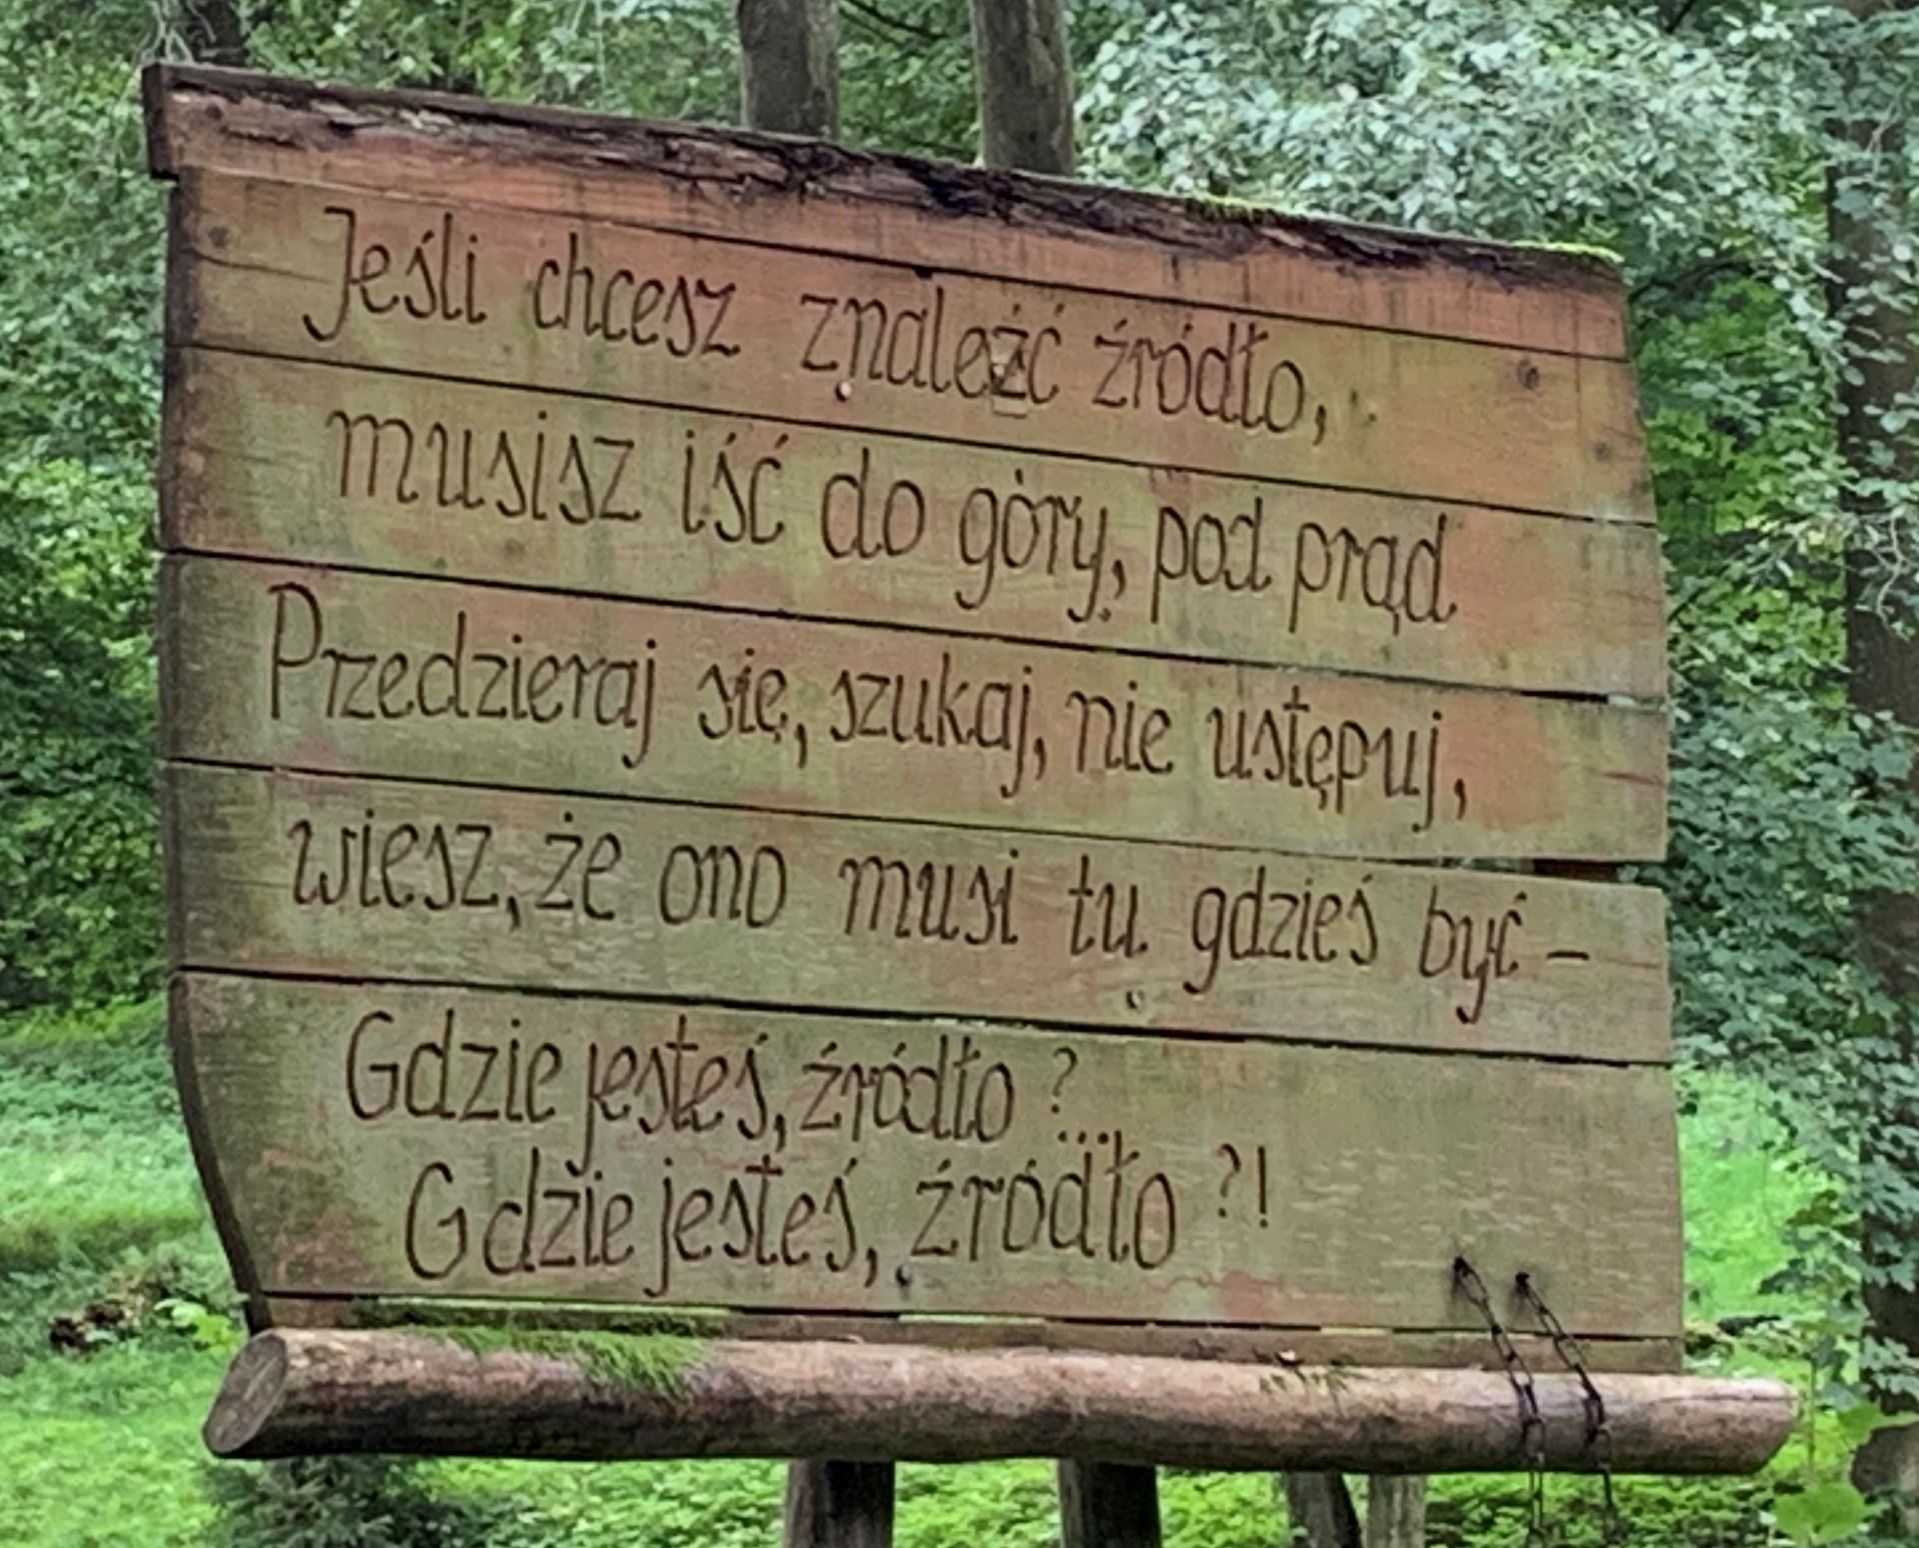 Jeśli chcesz znaleźć źródło,
musisz iść do góry, pod prąd
Przedzieraj się, szukaj, nie ustępuj,
wiesz, że ono musi tu gdzieś być –
Gdzie jesteś, źródło ?...
Gdzie jesteś, źródło ?!